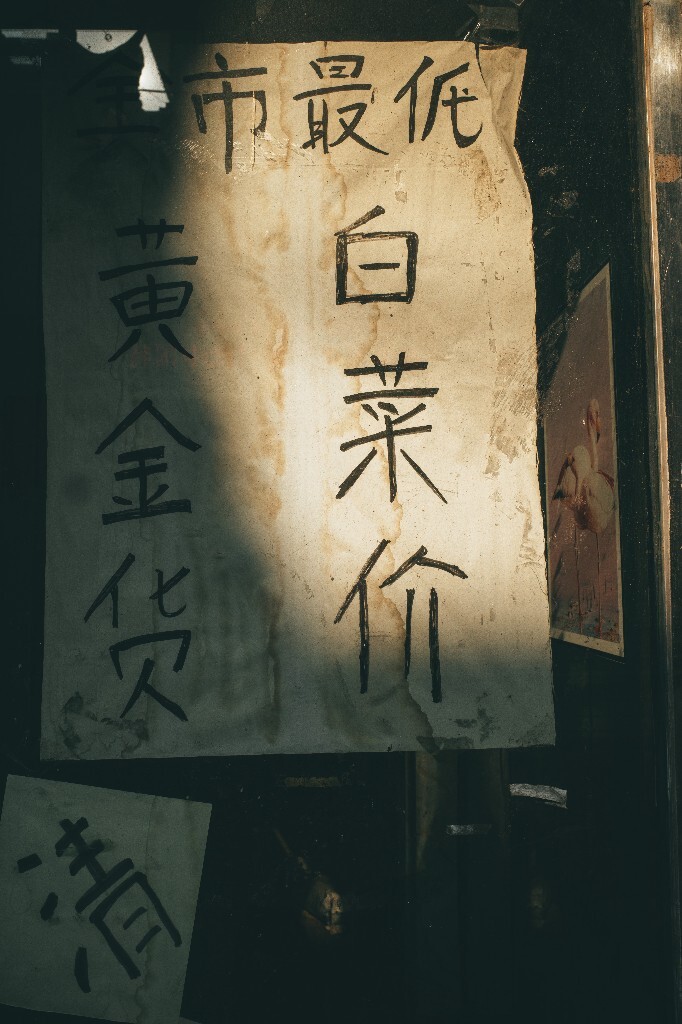 全市最低
黄金货
白菜价
清